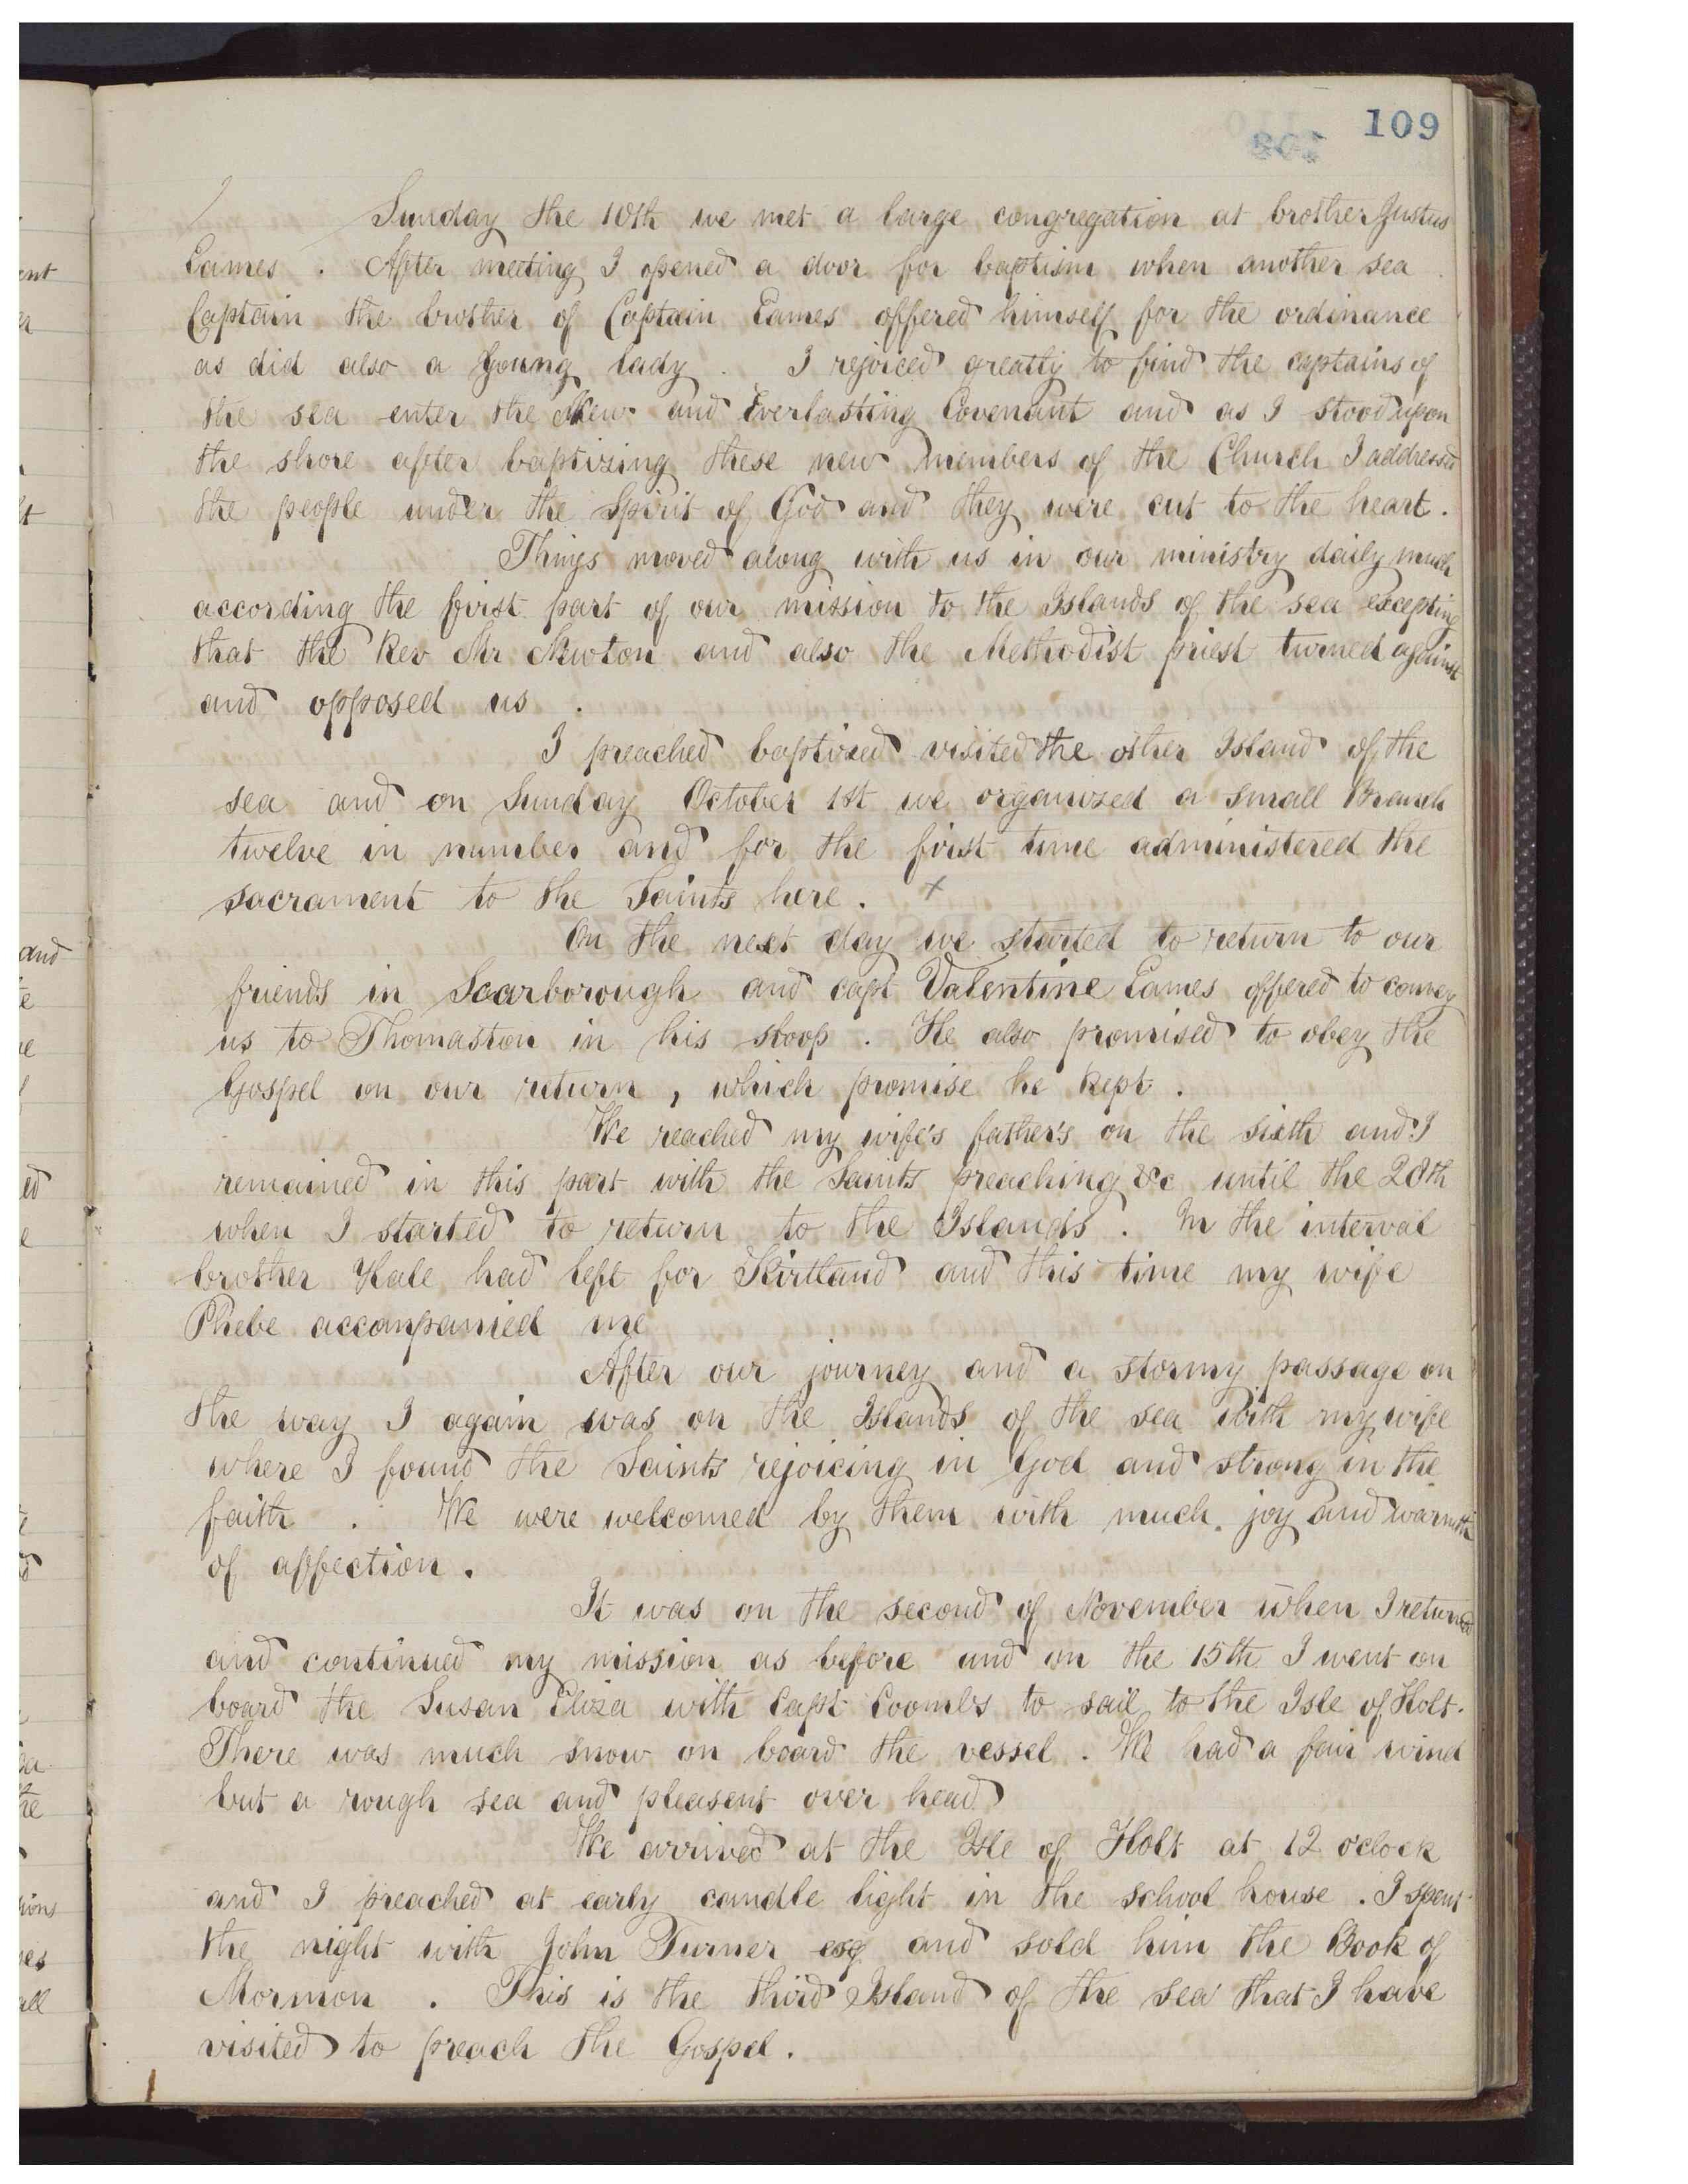 109
Sunday the 10th we met a large congregation at brother Justus
Eames . After meeting I opened a door for baptism when another sea
Captain the brother of Captain Eames offered himself for the ordinance
as did also a young lady . I rejoiced greatly to find the captains of
the sea enter the New and Everlasting Covenant and as I stood upon
the shore after baptizing these new members of the Church I addressed
the people under the Spirit of God and they were cut to the heart .
Things moved along with us in our ministry daily much
according the first part of our mission to the Islands of the sea excepting
that the Rev Mr Newton and also the Methodist priest turned against
and opposed us .
I preached baptized visited the other Island of the
sea and on Sunday October 1st we organized a small Branch
twelve in number and for the first time administered the
sacrament to the Saints here . x
On the next day we started to return to our
friends in Scarborough and capt Valentine Eames offered to convey
us to Thomaston in his sloop . He also promised to obey the
Gospel on our return , which promise he kept .
We reached my wife's father's on the sixth and I
remained in this part with the Saints preaching &c until the 28th
when I started to return to the Islands . In the interval
brother Hale had left for Kirtland and this time my wife
Phebe accompanied me
After our journey and a stormy passage on
the way I again was on the Islands of the sea with my wife
where I found the Saints rejoicing in God and strong in the
faith . We were welcomed by them with much joy and warmth
of affection .
It was on the second of November when I returned
and continued my mission as before and on the 15th I went on
board the Susan Eliza with Capt Coombs to sail to the Isle of Holt .
There was much snow on board the vessel . We had a fair wind
but a rough sea and pleasent over head
We arrived at the Isle of Holt at 12 o'clock
and I preached at early candle light in the school house . I spent
the night with John Turner esq and sold him the Book of
Mormon . This is the third Island of the sea that I have
visited to preach the Gospel .